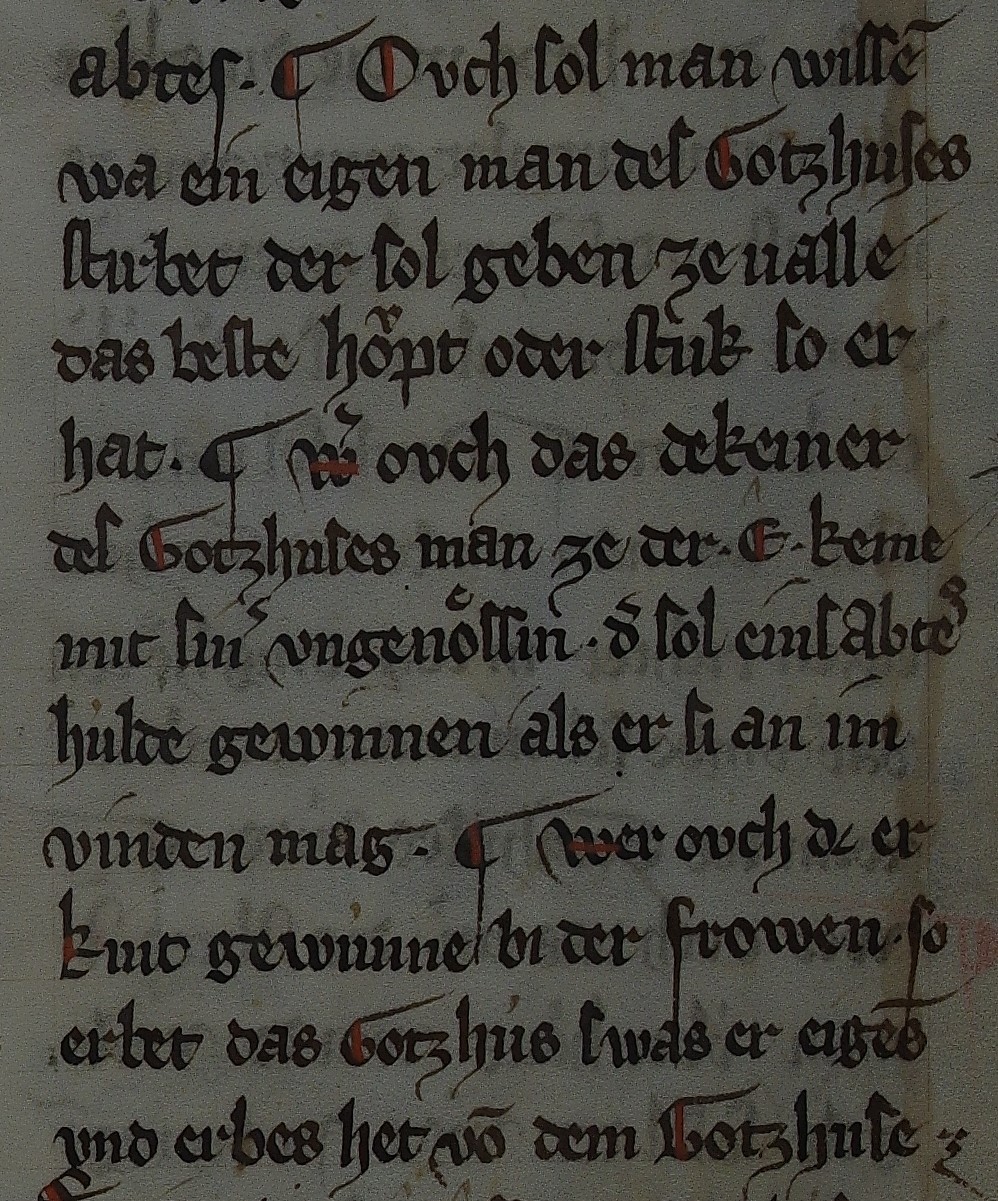 abtes. ¶ Ovch sol man wissē
wa ein eigen man des Gotzhuses
stirbet der sol geben ze ualle
das beste hoͮpt oder stuk so er
hat. ¶ wͥ ovch das dekeiner
des Gotzhuses man ze der. E. keme
mit sinˀ vngenoͤssin. dˀ sol eins Abteˢ
hulde gewinnen als er si an im
vinden mag. ¶ wer ovch dz er
kint gewinne bi der frowen. so
erbet das Gotzhus swas er eigēs
vnd erbes het vō dem Gotzhuse